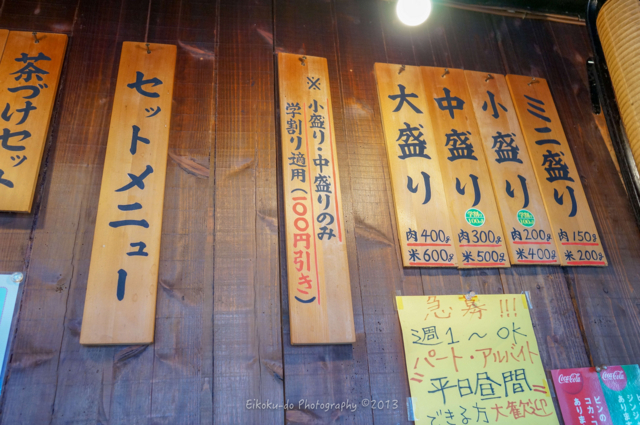 茶づけセット
セットメニュー
※小盛り・中盛りのみ
学割り適用(100円引き)
大盛り
肉400g
米600g
中盛り
肉300g
米500g
小盛り
肉200g
米400g
ミニ盛り
肉150g
米200g
急募!!!
週1~OK
パート・アルバイト
平日昼間
できる方大歓迎
Coca-Cola
Coca-Cola
Eikoku-do Photography ©2013